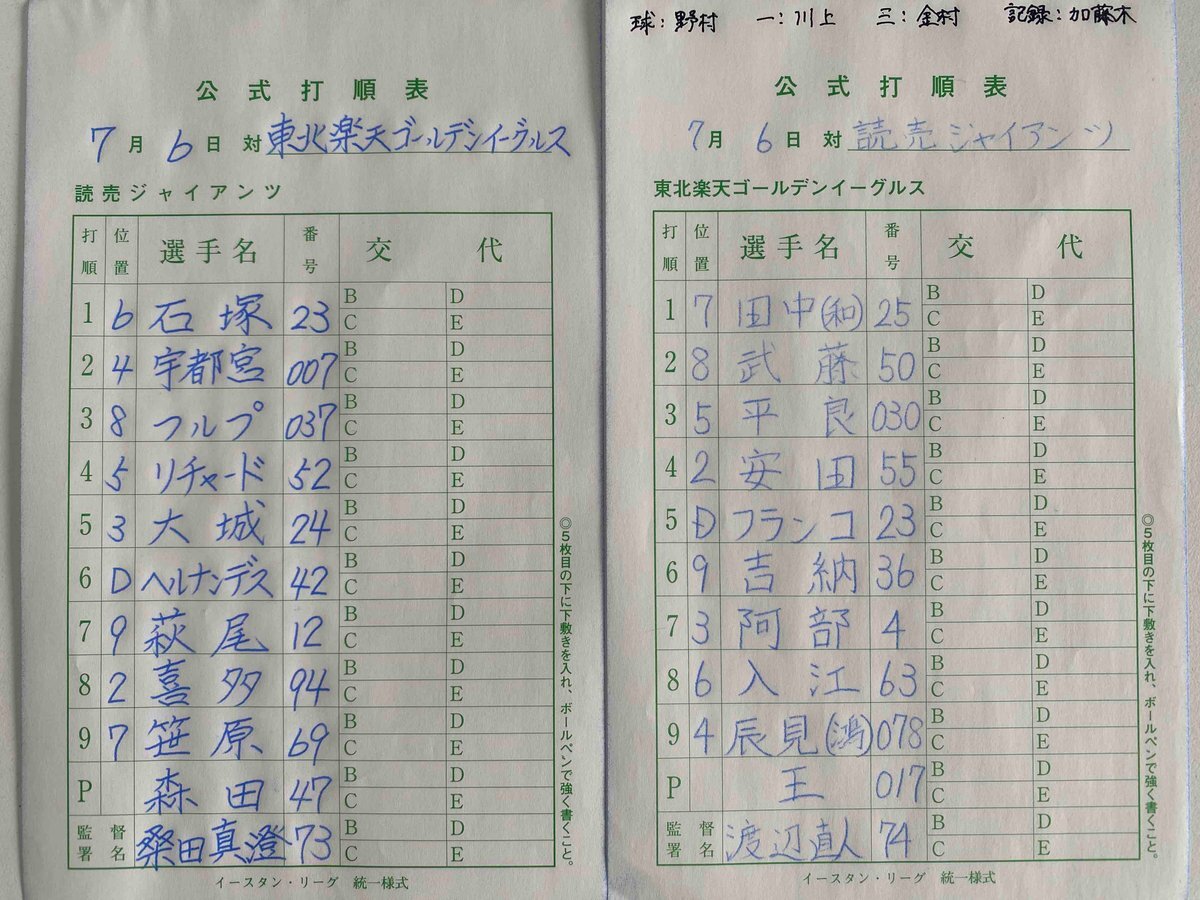 公式打順表
7月6日 対 東北楽天ゴールデンイーグルス
読売ジャイアンツ
打順 位置 選手名 番号 交代
1 6 石塚 23 B D C E
2 4 宇都宮 007 B D C E
3 8 フルプ 037 B D C E
4 5 リチャード 52 B D C E
5 3 大城 24 B D C E
6 D ヘルナンデス 42 B D C E
7 9 萩尾 12 B D C E
8 2 喜多 94 B D C E
9 7 笹原 69 B D C E
P 森田 47 B D C E
監督署名 桑田真澄 73 B D C E
◎5枚目の下に下敷きを入れ、ボールペンで強く書くこと。
イースタン・リーグ 統一様式
球:野村 一:川上 三:金村 記録:加藤木
公式打順表
7月6日 対 読売ジャイアンツ
東北楽天ゴールデンイーグルス
打順 位置 選手名 番号 交代
1 7 田中(和) 25 B D C E
2 8 武藤 50 B D C E
3 5 平良 030 B D C E
4 2 安田 55 B D C E
5 D フランコ 23 B D C E
6 9 吉納 36 B D C E
7 3 阿部 4 B D C E
8 6 入江 63 B D C E
9 4 辰見(鴻) 078 B D C E
P 王 017 B D C E
監督署名 渡辺直人 74 B D C E
◎5枚目の下に下敷きを入れ、ボールペンで強く書くこと。
イースタン・リーグ 統一様式